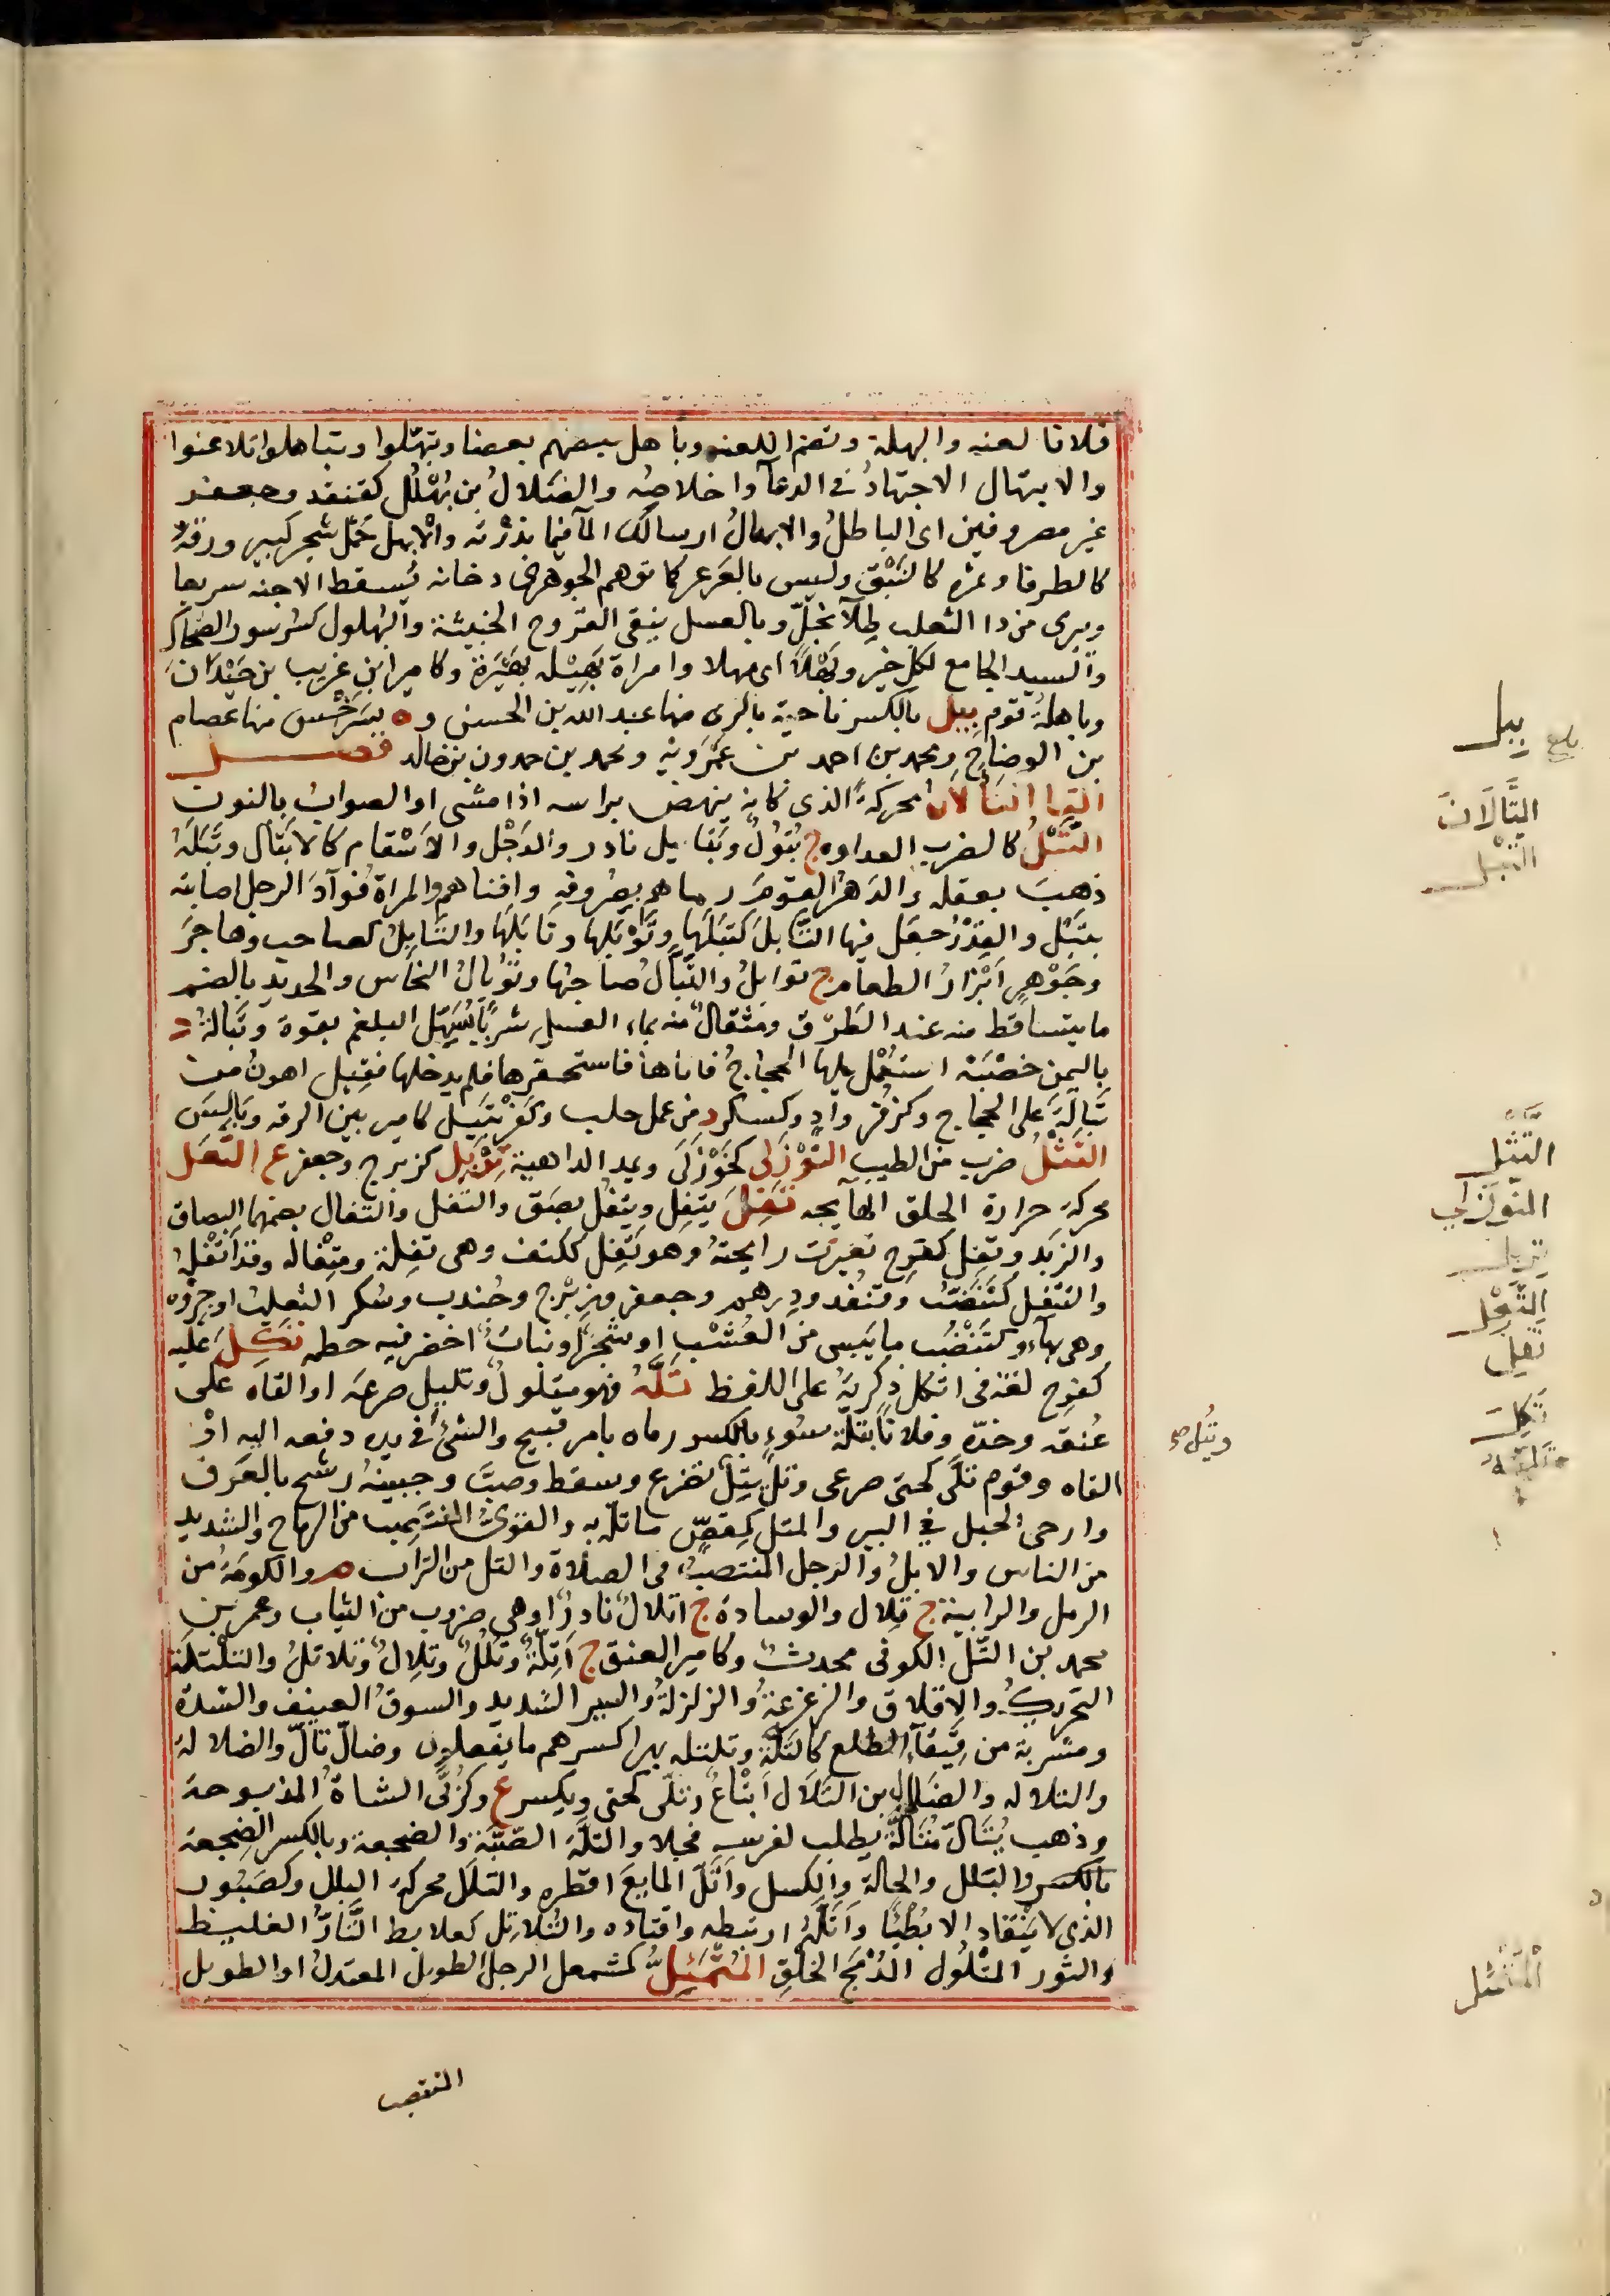 فلانا لعنه والبهلة وتضم اللعنه وباهل بعضهم بعضا وتبهّلوا وتباهلوا تلاعنوا
والابتهال الاجتهادُ فى الدعآ واخلاصُه والضَلالُ بن بُهْلُل كقنفد وجعفر
غير مصروفين اى الباطلُ والابهالُ ارسالك المآ فيما بذرْته والابهل حَمْل شجر كبير ورقهُ
كالطرفا وثمره كالنَبْق وليس بالعَرعر كما توهم الجوهرى دخانه يُسقط الاجنه سريعا
ويبرى من دا الثعلب طِلآ بخلّ وبالعسل ينقى القروح الخبيثة والبُهلول كسُرسور الضحاك
والسيد الجامع لكل خير وبَهْلاً اى مهلا وامراة بَهِيْله بَهِيْرَة وكامير ابن عَريب بن حَيْدانَ
وباهلةُ قوم بِيل بالكسر ناحية بالرى منها عبد الله بن الحسنى وه بسَرَخْس منها عصام
بن الوضاح ومحمد بن احمد بن عَمْرَويَه ومحمد بن حمدون بن خالد فصل
التا التَالَانُ محركةً الذى كانه ينهض براسه اذا مشى او الصوابُ بالنون
التَبْلُ كالضرب العداوه ج تُبُولٌ وتَبَابيل نادر والدَخْل والاسْقام كالاتبال وتَبَلَهُ
ذهبَ بعقله والدَهْرُ القومَ رماهم بصُروفه وافناهم والمراة فُوآدَ الرجل اصابته
بتَبْل والقِدْرَ جعَل فيها التَّابلَ كتبَلَها وتَوْبَلها وتَابَلَها والتَابِلُ كصاحب وهاجَر
وجَوْهرٍ اَبْزارُ الطعام ج توابلُ والتَبّالُ صاحِبُها وتُوبالُ النحاس والحديد بالضم
ما يتساقط منه عند الطَرْق ومثقالٌ منه بماء العسل شربًا يُسَهّل البلغم بقوة وتَبالةُ د
باليمن خصْبَة استُعْمِل عليها الحجاجُ فاتاها فاستحقرها فلم يدخلها فقيل اهونُ من
تَبالةَ على الحجاج وكزُفَر وادٍ وكسكر د من عمل حلب وكَفْرُتبيل كامير بين الرقه وبَالِسَ
التَثْلُ ضرب من الطيب التَوْزَلى كخَوْزَلَى ويمد الداهية تِرْبِل كزبرج وجعفر ع التَعَل
محركةً حرارة الحلق الهايجه تَفَلَ يتفِل ويتفُل بصَق والتفل والتفال بضمهما البصاق
والزبَد وتفِل كفرح تغيّرت رايحتهُ وهو تَفِل ككتف وهى تفِلة ومِتْفاله وقد اتْفَلهُ
والتتفل كتَنْضُب وقنفُد ودِرهم وجعفر وزِبْرج وجُندب وسُكر الثعلب او جِرْوه
وهى بهآء وكتَنْضُب ما يَبس من العُشْب او شجرٌ او نباتٌ اخضر فيه حطمه تَكِلَ عليه
كفرح لغة فى اتكل ذكرتهُ على اللفظ تَلَّهُ فهو متلولٌ وتليل صرعَه او القاه على
عُنقه وخدّه وفلاناً بتِلّة سُوءٍ بالكسر رماه بامر قبيح والشئَ فى يده دفعه اليه اوْ
القاه وقوم تلَّى كحتى صرعى وتلَّ يتِلّ تضرع وسقط وصبَّ وجبينهُ رشح بالعَرق
وارخى الحبل فى البير والمتل كمِقَصّ ما تلّه به والقوىُّ المنتَصب من الرماح والشديد
من الناس والابلُ والرجل المنتصبُ فى الصلاة والتل من التراب م والكومَةُ من
الرمل والرابية ج تِلال والوسادة ج اتلالٌ نادرٌ او هى ضروب من الثياب وعمر بن
محمد بن التَّل الكوفى محدث وكامير العنق ج اَتِلَّةٌ وتُلُلٌ وتِلالٌ وتَلاتلُ والتَلْتلة
التحريكُ والاقلاق والزعزعةُ والزلزلةُ والسير الشديد والسوقُ العنيف والشدة
ومشربة من قِيقآءِ الطلع كالتَلّة وتلتله بهرا كسرهم ما يفعلون وضالّ تالّ والضلالةُ
والتلاله والضلال بن التَلَال اَتْباعٌ وتلّى كحتى ويكسر ع وكرُبَّى الشاةُ المذبوحة
وذهب يُتَالُّ مُتَالَّةً يطلب لفرسه فحلا والتلَّة الصَبَّة والضجعة وبالكسر الضِجعة
بالكسر والبَلل والحالة والكسل واتلّ المايعَ اقطره والتلَل محركة البلل وكصَبُور
الذى لا يَنْقاد الا بُطْيًّا واَتَلَّهُ ارتبطه واقتاده والتُلاتِل كعلابط التَّارُّ الغليظ
والثور المتْلُول المُدْمَج الخَلق المُتْمَئِلُّ كمشمعل الرجل الطويل المعتدلُ او الطويل
المنتصب
بيل
التَّالَانَ
التبل
التَّثْل
التوزلي
تربل
التَّعْل
تفل
وتُبُل صح
تَكِلَ
تَلَّهُ
المتمئل